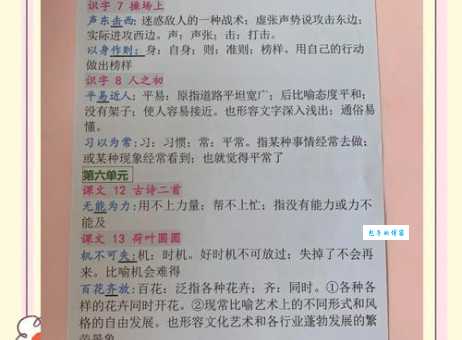 识字 7 操场上
声东击西：迷惑敌人的一种战术；虚张声势说攻击东边；
实际进攻西边。声：声张；击：打击。
以身作则：身：自身；则：准则；榜样。用自己的行动
做出榜样
识字 8 人之初
平易近人：平易：原指道路平坦宽广；后比喻态度平和；
没有架子；使人容易接近。也形容文字深入浅出；通俗易
懂。
习以为常：习：习惯；常：平常。指某种事情经常去做；
或某种现象经常看到；也就觉得平常了
第六单元
课文 12 古诗二首
无能为力：用不上力量；帮不上忙；指没有能力或力不
能及
课文 13 荷叶圆圆
机不可失：机：时机。好时机不可放过；失掉了不会再
来。比喻机会难得
百花齐放：百花：泛指各种花卉；齐：同时。①各种各
样的花卉同时开花。②现常比喻艺术上的不同形式和风
格的自由发展。也形容文化艺术和各行业蓬勃发展的繁
荣景象